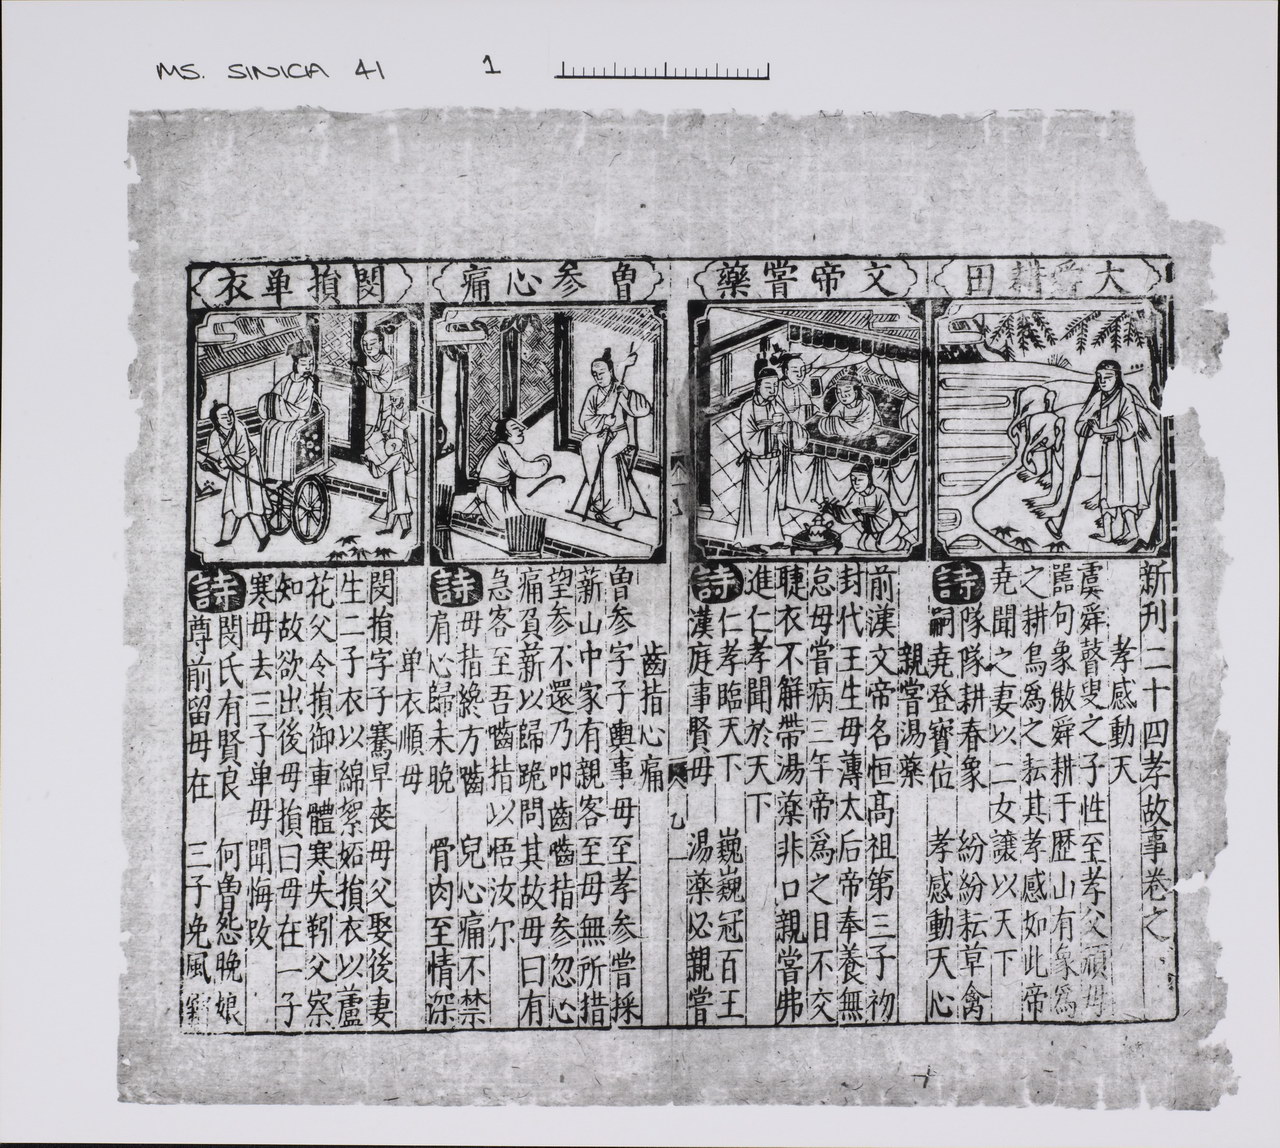 MS. SINICA 41
1
大舜耕田
文帝嘗藥
魯參心痛
閔損单衣
新刊二十四孝故事卷之
孝感動天
虞舜瞽叟之子性至孝父頑母
嚚句象傲舜耕于歷山有象爲
之耕鳥爲之耘其孝感如此帝
尭聞之妻以二女讓以天下
詩
隊隊耕春象 紛紛耘草禽
嗣尭登寳位 孝感動天心
親嘗湯藥
前漢文帝名恒高祖第三子初
封代王生母薄太后帝奉養無
怠母嘗病三年帝爲之目不交
睫衣不解帶湯藥非口親嘗弗
進仁孝聞於天下
詩
仁孝臨天下 巍巍冠百王
漢庭事賢母 湯藥必親嘗
乙
齒指心痛
魯參字子輿事母至孝參嘗採
薪山中家有親客至母無所措
望參不還乃叩齒嚙指參忽心
痛負薪以歸跪問其故母曰有
急客至吾嚙指以悟汝尔
詩
母指纔方嚙 兒心痛不禁
肩心歸未晚 骨肉至情深
单衣順母
閔損字子騫早丧母父娶後妻
生二子衣以綿絮妬損衣以蘆
花父令損御車體寒失靷父察
知故欲出後母損曰母在一子
寒母去三子单母聞悔改
詩
閔氏有賢良 何魯怨晚娘
尊前留母在 三子免風